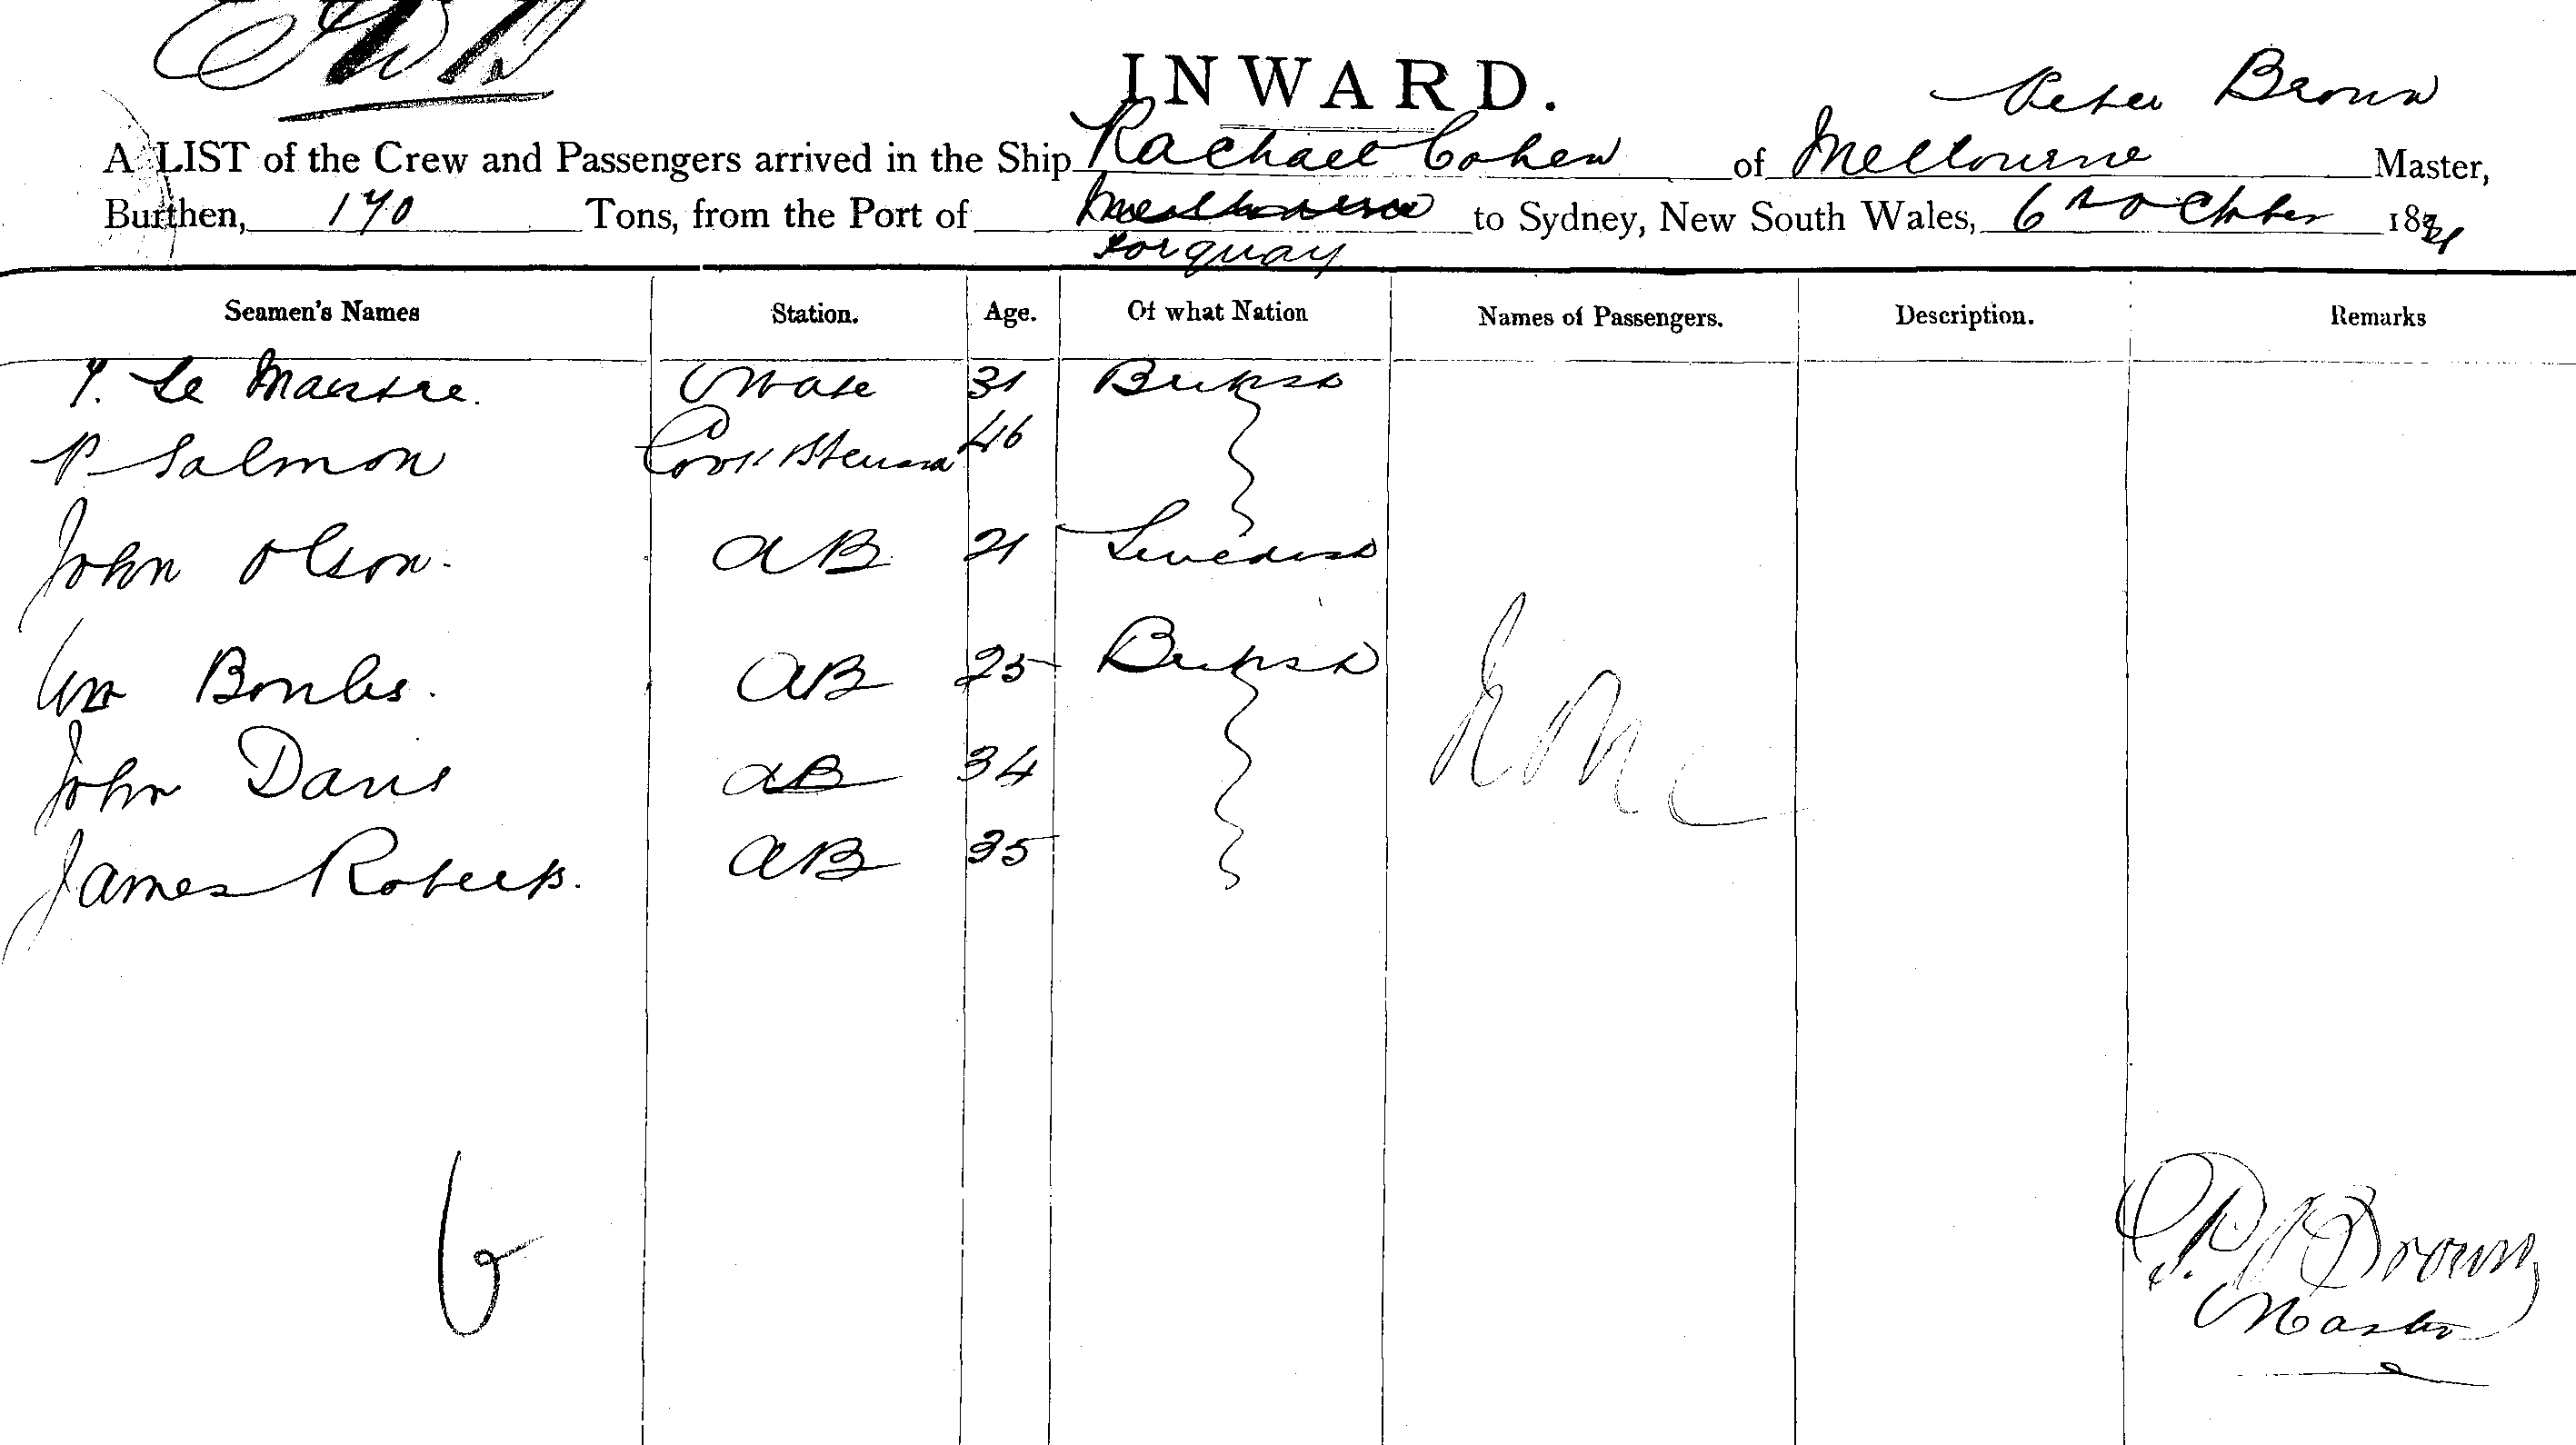 INWARD.
Peter Brown
A LIST of the Crew and Passengers arrived in the Ship Rachael Cohen of Melbourne Master,
Burthen, 190 Tons, from the Port of Melbourne to Sydney, New South Wales, 6 October 18
Torquay
Seamen's Names Station. Age. Of what Nation Names of Passengers. Description. Remarks
Le Maistre. Mate 31 British
P Salmon Cook Steward 46
John Olson. AB 21 Swedish
Wm AB 25 British
John Davis AB 34
James Roberts. AB 35
6
P. Brown
Master